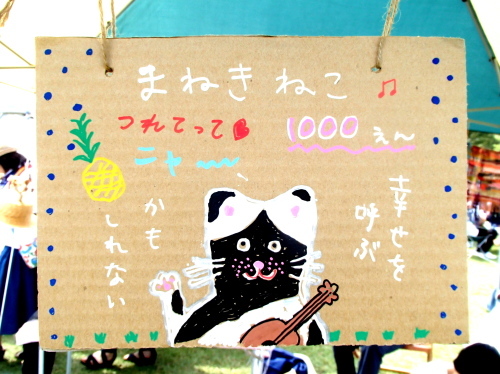 まねきねこ
つれてって
1000えん
ニャー
幸せを
呼ぶ
かも
しれない